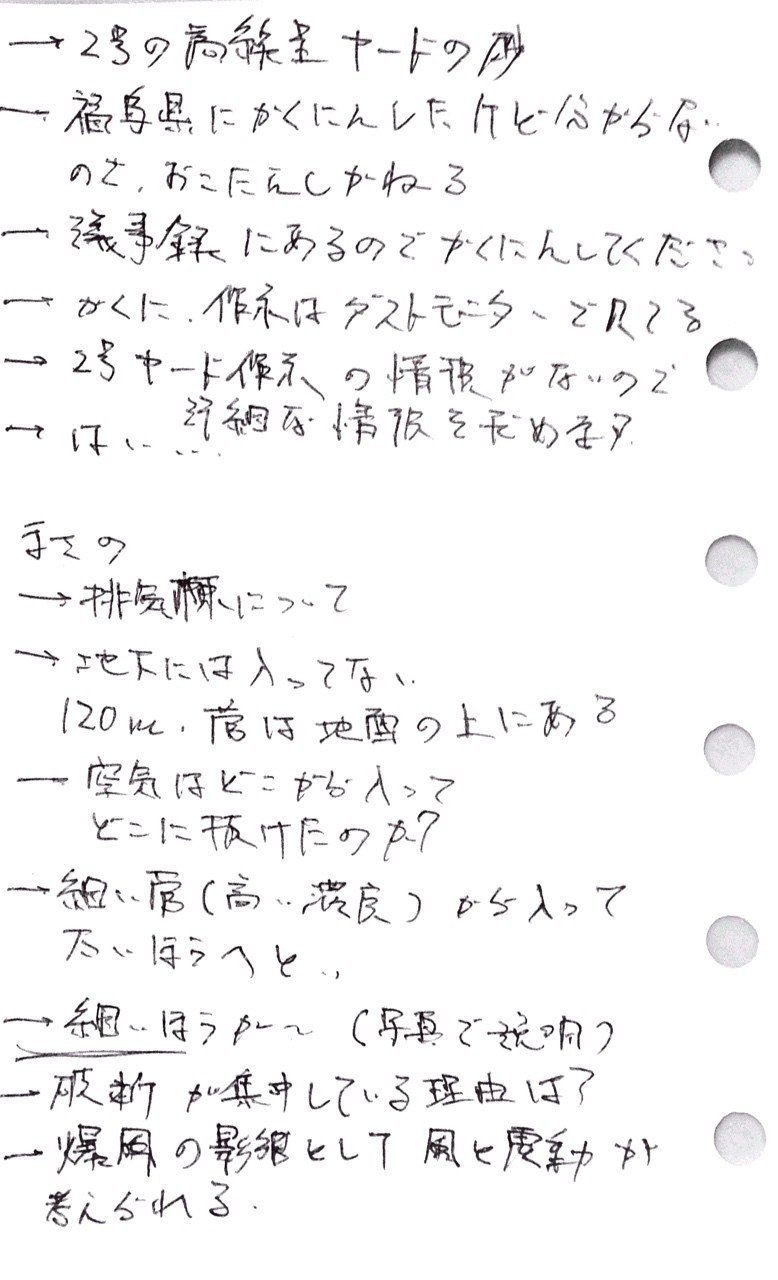 → 2号の高線量ヤードの砂
→ 福島県にかくにんしたけど分からない
ので、おこたえしかねる
→ 議事録にあるのでかくにんしてください
→ かくに、作業はダストモニターで見てる
→ 2号ヤード作業の情報がないので
詳細な情報を求めます
→ はい…
まさの
→ 排気塔について
→ 地下には入ってない
120m、管は地面の上にある
→ 空気はどこから入って
どこに抜けたのか?
→ 細い管(高い濃度)から入って
太いほうへと、、
→ 細いほうから (写真で説明)
→ 破断が集中している理由は?
→ 爆風の影響として風と震動が
考えられる.